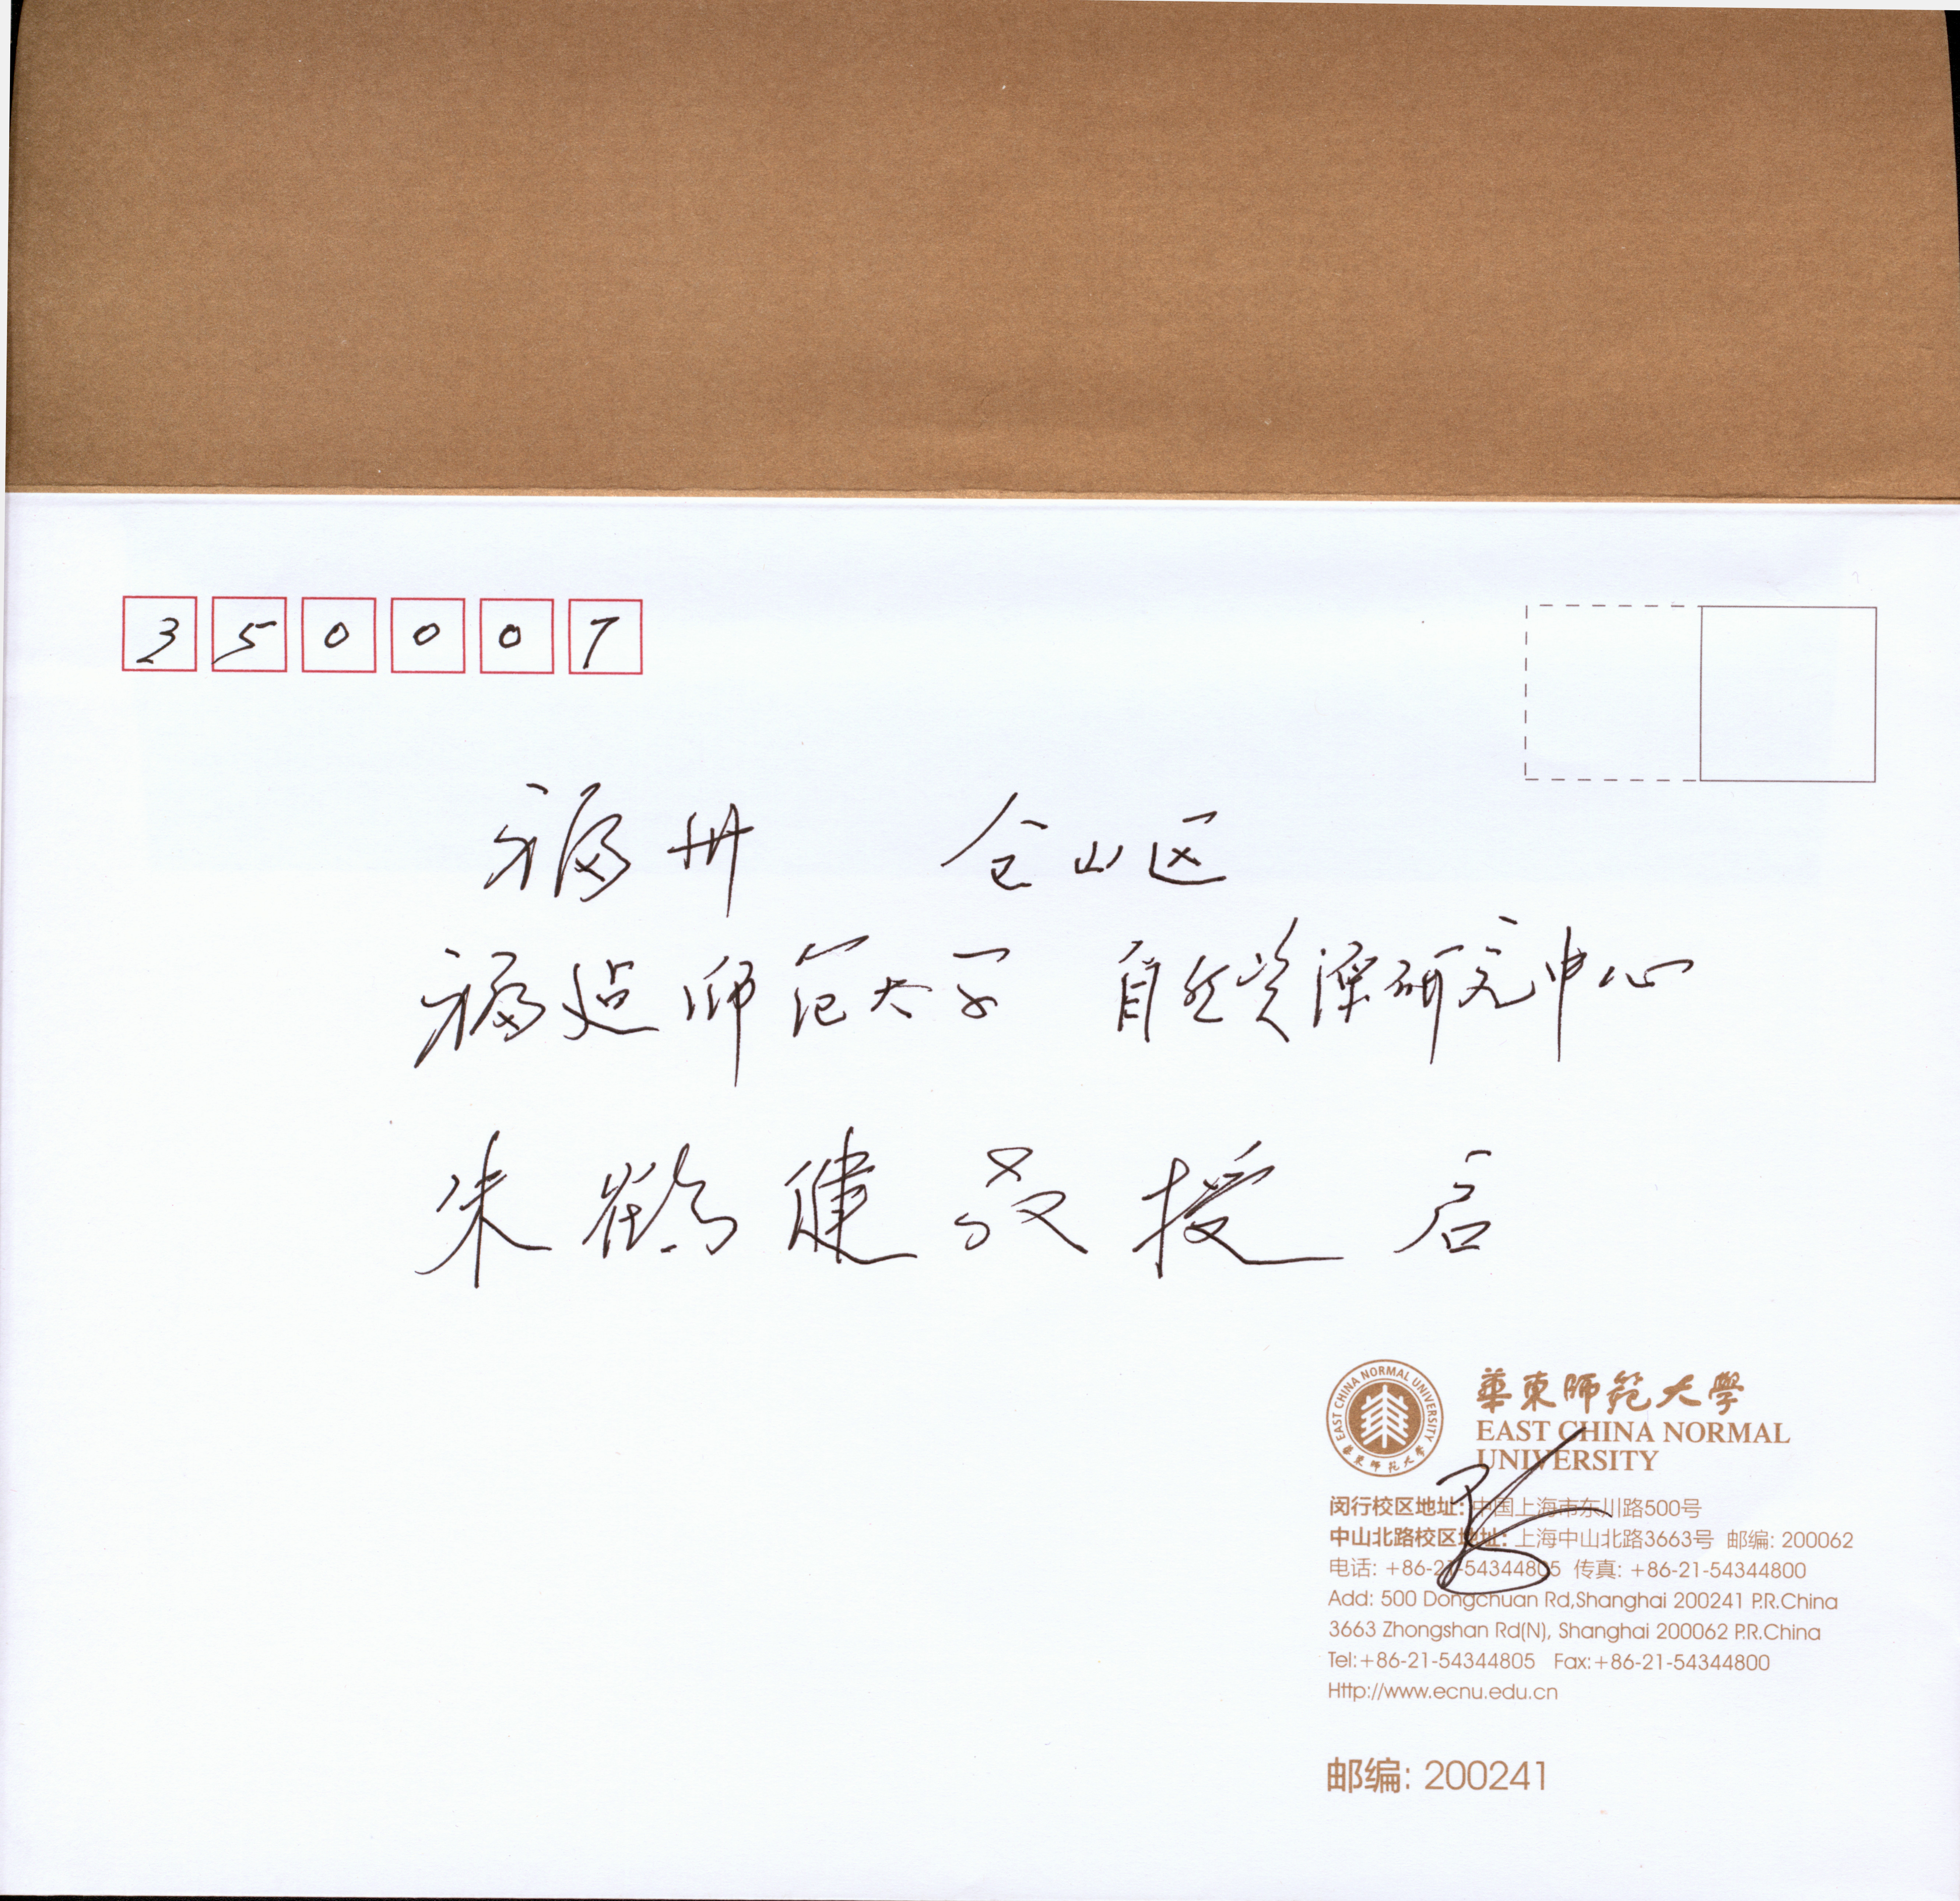 350007
福州 仓山区
福建师范大学 自然资源研究中心
朱鹤健教授 启
EAST CHINA NORMAL UNIVERSITY
華東師范大學
華東師范大學
EAST CHINA NORMAL
UNIVERSITY
闵行校区地址: 中国上海市东川路500号
中山北路校区地址: 上海中山北路3663号 邮编: 200062
电话: +86-21-54344805 传真: +86-21-54344800
Add: 500 Dongchuan Rd,Shanghai 200241 P.R.China
3663 Zhongshan Rd(N), Shanghai 200062 P.R.China
Tel:+86-21-54344805 Fax:+86-21-54344800
Http://www.ecnu.edu.cn
邮编: 200241